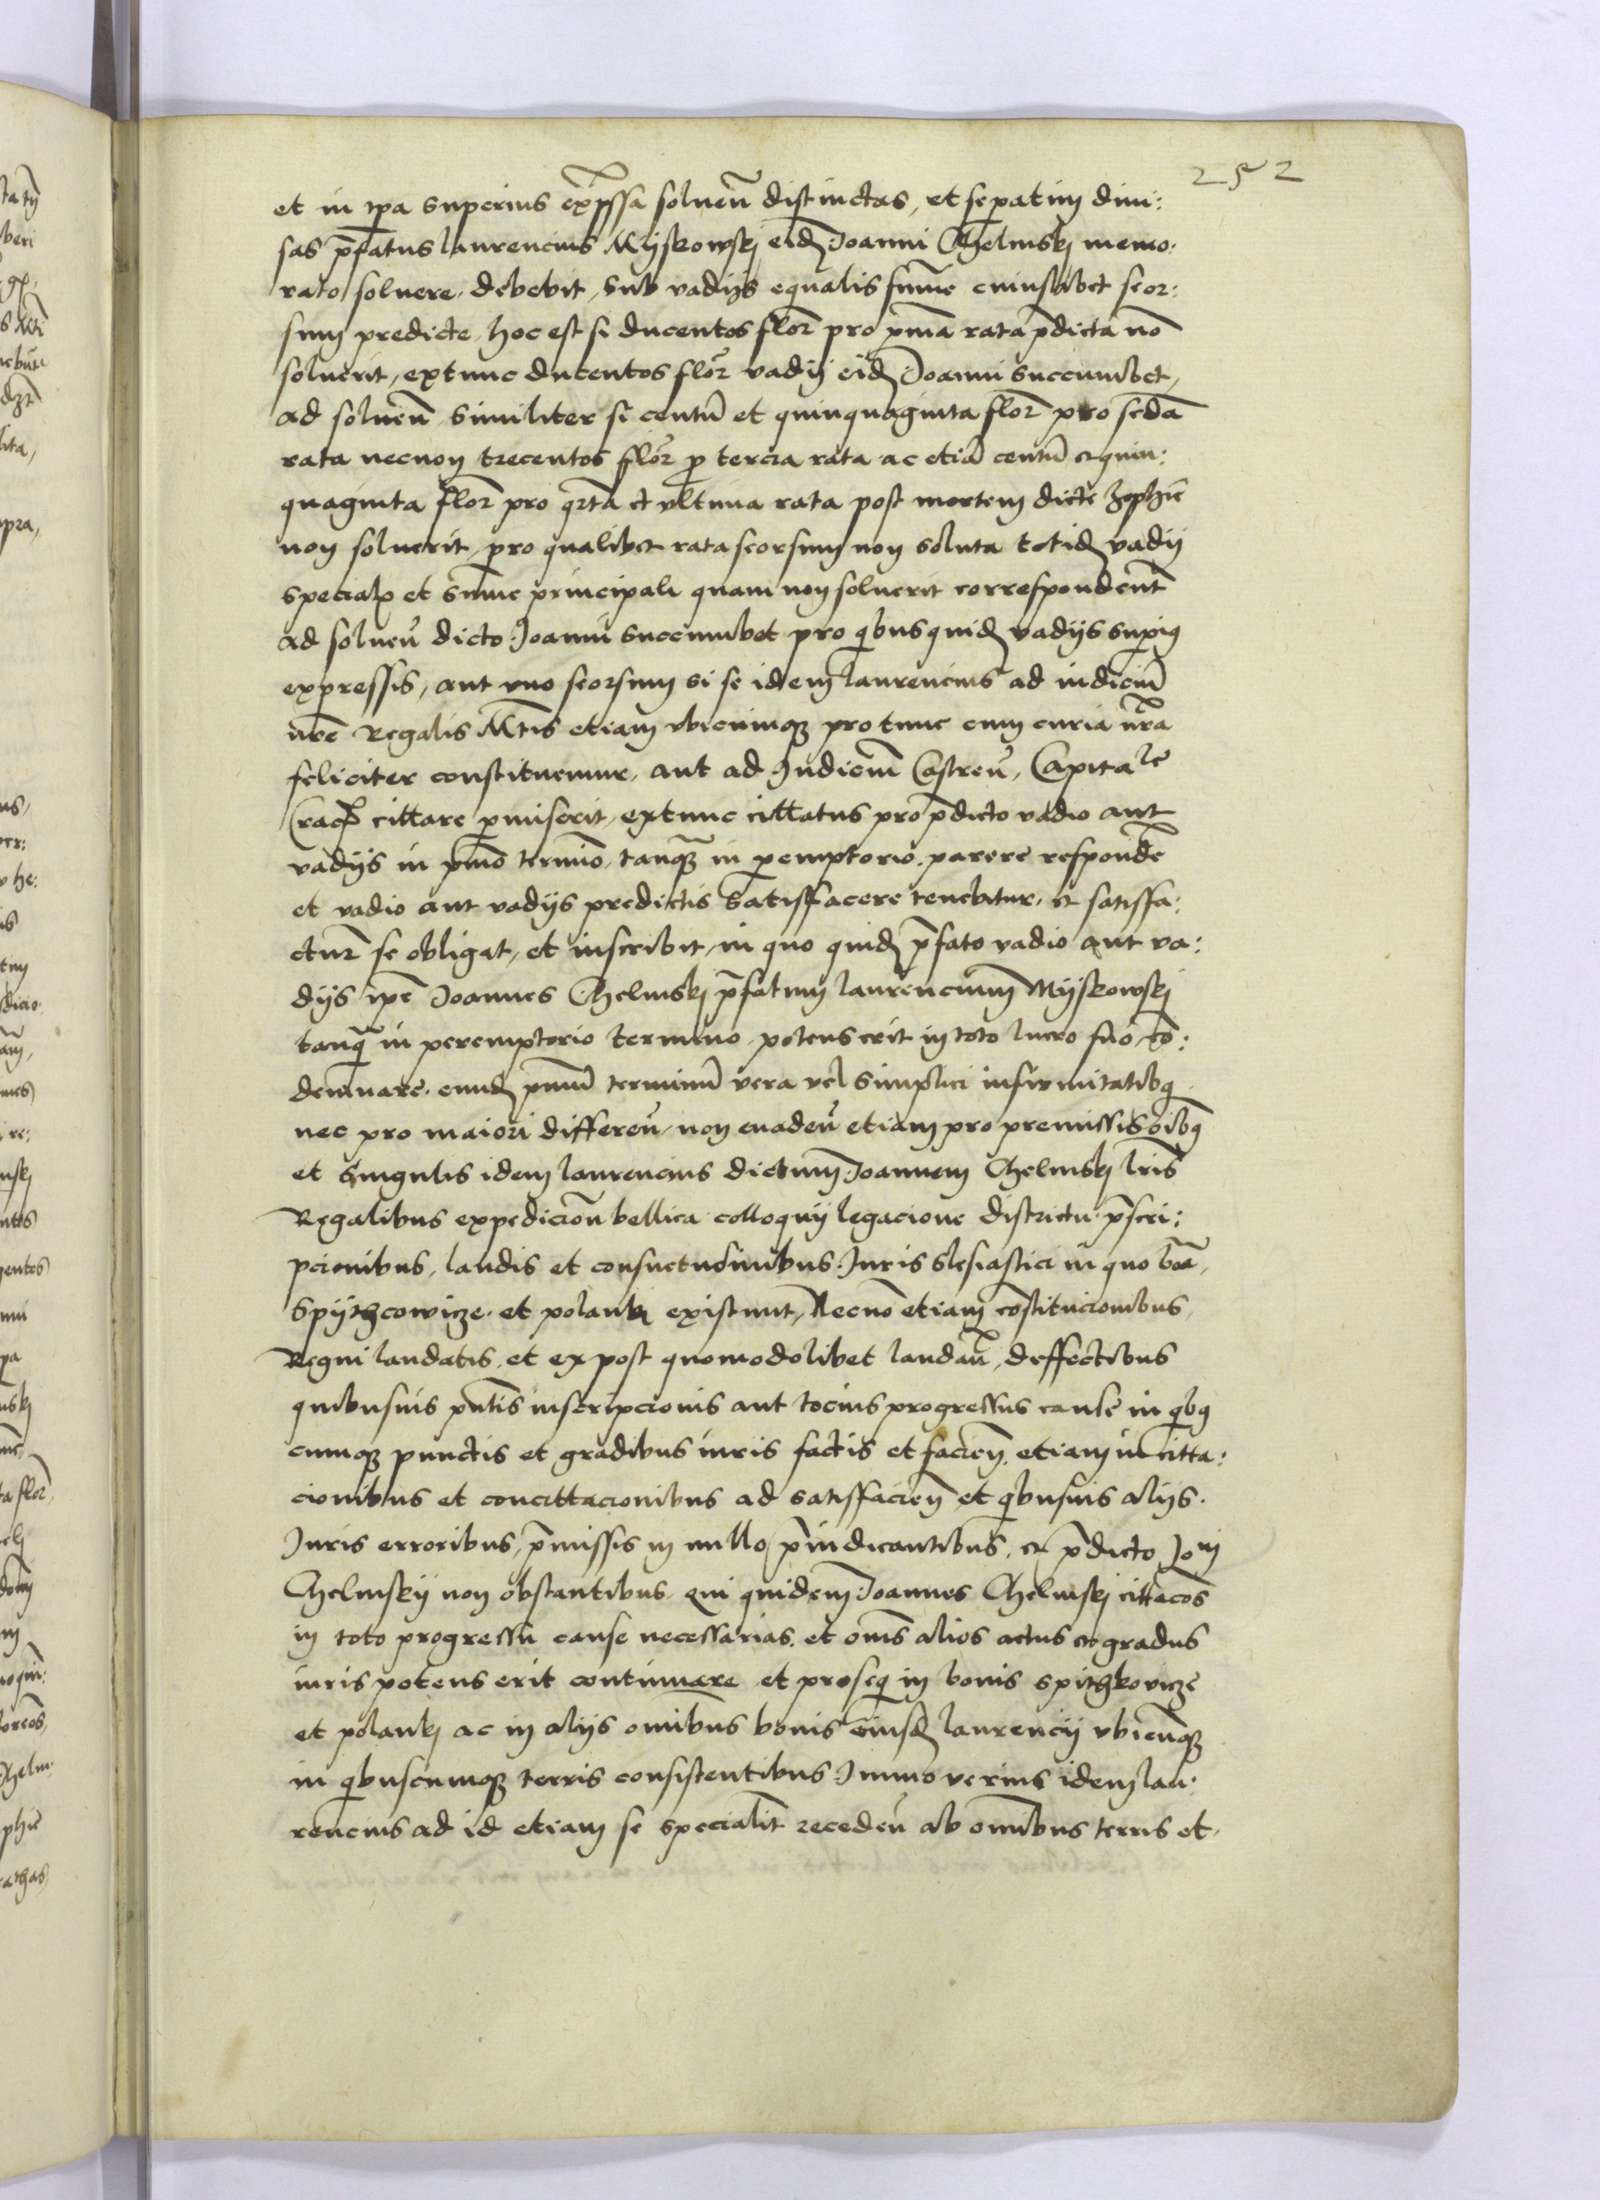 252
et in ip̄a superius exp̄ssa soluen̄ distinctas, et sep̱atim diui:
sas p̄fatus laurencius Myskowskj eid̄ Joanni Chelmskj memo-
rato soluere debebit, sub vadijs equalis sum̄e cuiuslibet seor:
sum predicte, hoc est si ducentos flor̄ pro p̄ma rata p̄dicta nō
soluerit, extunc ducentos flor̄ vadij eid̄ Joanni succumbet,
ad soluen̄ similiter si centū et quinquaginta flor̄ pro sēda
rata necnon trecentos flor̄ p̱ tercia rata ac etiā centū et quin:
quaginta flor̄ pro q̄rta et vltima rata post mortem dicte Zophie
non soluerit, pro qualibet rata seorsum non soluta totid̄ vadij
special̄ et sum̄e principali quam non soluerit correspondent̄
ad soluen̄ dicto Joanni succumbet pro q̱bus quid̄ vadijs sup̱iꝰ
expressis, aut vno seorsum si se idem laurencius ad iudiciū
nr̄e Regalis Mt̄is etiam vbicumqꝫ pro tunc cum curia nr̄a
feliciter constituemur, aut ad Judiciū Castren̄, Capitale
Crac̄ cittare p̱miserit, extunc cittatus pro p̄dicto vadio aut
vadijs in p̄mo termīo, tanqꝫ in p̱emptorio, parere respondē
et vadio aut vadijs predictis satisfacere tenebitur, et satisfa:
ctur̄ se obligat, et inscribit, in quo quid̄ p̄fato vadio aut va:
dijs ip̄e Joannes Chelmskj p̄fatum laurencium Myskowskj
tanq̄ in peremptorio termino, potens erit in toto lucro suo cō:
demnare. eund̄ p̄mū terminū vera vel simplici infirmitatibꝰ
nec pro maiori differen̄, non euaden̄ etiam pro premissis oībꝰ
et singulis idem laurencius dictum Joannem Chelmskj lr̄is
Regalibus expedicion̄ bellica colloquij legacione districtu p̄scri:
pcionibus, laudis et consuetudinibus Juris slesiastici in quo bōa
Spythcowicze et polankj existunt, Necnō etiam cōstitucionibus
Regni laudatis, et ex post quomodolibet laudan̄, deffectibus
quibusuis p̄ntis inscripcionis aut tocius progressus cause in q̱bꝰ
cumqꝫ punctis et gradibus iuris factis et facien̄, etiam in citta:
cionibus et concittacionibus ad satisfacien̄ et q̱busuis alijs
Juris erroribus, p̄missis in nullo p̄iudicantibus, et p̄dicto Joni
Chelmskij non obstantibus. qui quidem Joannes Chelmskj cittacōs
in toto progressu cause necessarias, et om̄s alios actus et gradus
iuris potens erit continuare et proseq̱ in bonis spithkovicze
et polankj ac in alijs omībus bonis eiusd̄ laurencij vbicunqꝫ
in q̱buscumqꝫ terris consistentibus. Jmmo verius idem lau:
rencius ad id etiam se specialit̄ receden̄ ab omībus terris et